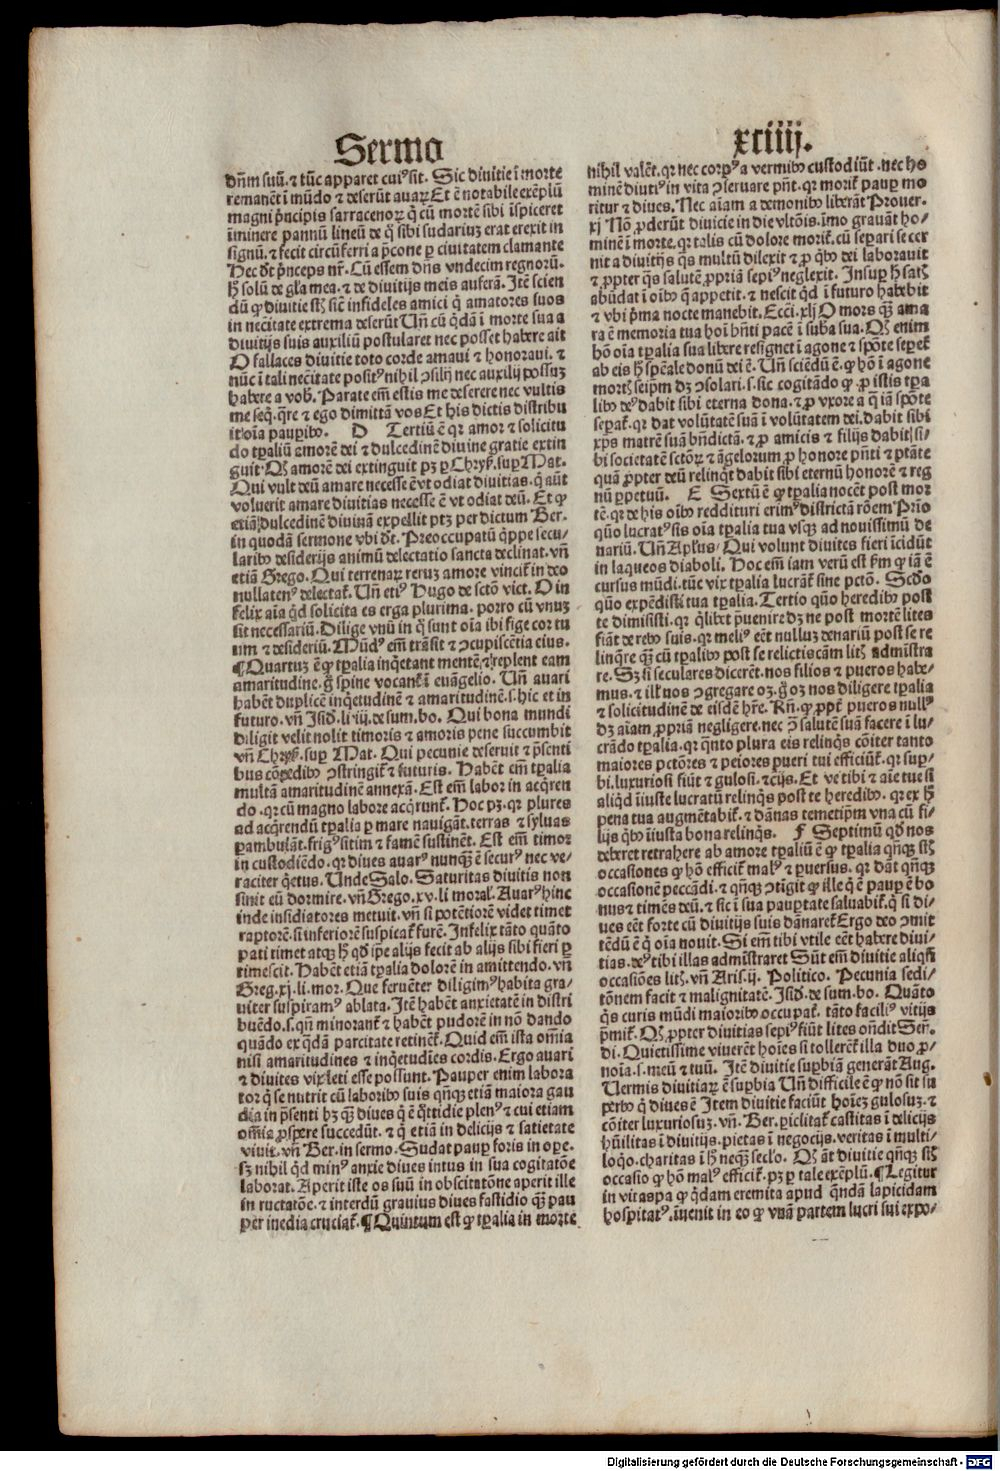 Sermo
xciiij.
dñm suũ. ⁊ tũc apparet cuiꝰ sit. Sic diuitie ĩ morte
remanẽt ĩ mũdo ⁊ deserũt auaꝝ Et ẽ notabile exẽplũ
magni pⁱncipis sarracenoꝝ q̇ cũ mortẽ sibi ĩspiceret
ĩminere pannũ lineũ de q̊ sibi sudariuꝫ erat erexit in
signũ. ⁊ fecit circũferri a p̃cone ꝑ ciuitatem clamante
Hec dt̃ pⁱnceps nr̃. Cũ essem dñs vndecim regnoꝝ.
h̃ solũ de gl̃a mea. ⁊ de diuitijs meis auferã. Itẽ scien
dũ ꝙ diuitie st̃ sic̃ infideles amici q̇ amatores suos
in necc̃itate extrema deserũt Vñ cũ q̇dã ĩ morte sua a
diuitijs suis auxiliũ postularet nec posset habere ait
O fallaces diuitie toto corde amaui ⁊ honoraui. ⁊
nũc ĩ tali necc̃itate positꝰ nihil ꝯsilij nec auxilij possuꝫ
habere a vob̃. Parate em̃ estis me deserere nec vultis
me seq̇. q̃re ⁊ ego dimittã vos Et his dictis distribu
it oĩa pauꝑibꝰ. D Tertiũ ẽ qꝛ amor ⁊ solicitu
do tꝑaliũ amorẽ dei ⁊ dulcedinẽ diuine gratie extin
guit. Qꝫ amorẽ dei extinguit pꝫ ꝑ Chryš. suꝑ Mat.
Qui vult deũ amare necesse ẽ vt odiat diuitias. q̇ aũt
voluerit amare diuitias necesse ẽ vt odiat deũ. Et ꝙ
etiã dulcedinẽ diuinã expellit ptꝫ per dictum Ber.
in quodã sermone vbi dt̃. Preoccupatũ q̃ppe secu-
laribꝰ desiderijs animũ delectatio sancta declinat. vñ
etiã Grego. Qui terrenaꝝ reruꝫ amore vinciť in deo
nullatenꝰ delectať. Vñ etiꝫ Hugo de scto vict. O in
felix aĩa q̇d solicita es erga plurima. porro cũ vnuꝫ
sit necessariũ. Dilige vnũ in q̊ sunt oĩa ibi fige cor tu
um ⁊ desideriũ. Mũdꝰ em̃ trãsit ⁊ ꝯcupiscẽtia eius.
¶Quartuꝫ ẽ ꝙ tꝑalia inq̇etant mentẽ ⁊ replent eam
amaritudine. g̃ spine vocanť ĩ euãgelio. Vñ auari
habẽt duplicẽ inq̇etudinẽ ⁊ amaritudinẽ. s. hic et in
futuro. vñ Isid̃. li. iij. de sum. bo. Qui bona mundi
diligit velit nolit timoris ⁊ amoris pene succumbit
vñ Chryš. suꝑ Mat. Qui pecunie deseruit ⁊ p̃senti
bus cõpedibꝰ ꝯstringiť ⁊ futuris. Habẽt em̃ tꝑalia
multã amaritudinẽ annexã. Est em̃ labor in acq̇ren
do. qꝛ cũ magno labore acq̇runť. Hoc pꝫ. qꝛ plures
ad acq̇rendũ tꝑalia ꝑ mare nauigãt. terras ⁊ syluas
ꝑambulãt. frigꝰ sitim ⁊ famẽ sustinẽt. Est em̃ timor
in custodiẽdo. qꝛ diues auarꝰ nunq̃ꝫ ẽ securꝰ nec ve-
raciter q̇etus. Unde Salo. Saturitas diuitis non
sinit eũ dormire. vñ Grego. xv. li moral̃. Auarꝰ hinc
inde insidiatores metuit. vñ si potẽtiorẽ videt timet
raptorẽ. si inferiorẽ suspicať furẽ. Infelix tãto quãto
pati timet atqꝫ h̃ qđ ip̃e alijs fecit ab alijs sibi fieri ꝑ
timescit. Habẽt etiã tꝑalia dolorẽ in amittendo. vñ
Greg. xj. li. mor. Que feruẽter diligimꝰ habita gra-
uiter suspiramꝰ ablata. Itẽ habẽt anxietatẽ in distri
buẽdo. s. qñ minoranť ⁊ habẽt pudorẽ in nõ dando
quãdo ex q̃dã parcitate retinenť. Quid em̃ ista omĩa
nisi amaritudines ⁊ inq̇etudĩes cordis. Ergo auari
⁊ diuites vix leti esse possunt. Pauper enim labora
tor q̇ se nutrit cũ laboribꝰ suis qñqꝫ etiã maiora gau
dia in p̃senti hꝫ q̃ꝫ diues q̇ ẽ q̊ttidie plenꝰ ⁊ cui etiam
omĩa ꝓspere succedũt. ⁊ q̇ etiã in delicijs ⁊ satietate
viuit. vñ Ber. in sermo. Sudat pauꝑ foris in oꝑe.
sꝫ nihil q̇d minꝰ anxie diues intus in sua cogitatõe
laborat. Aperit iste os suũ in obscitatõne aperit ille
in ructatõe. ⁊ interdũ grauius diues fastidio q̃ꝫ pau
per inedia cruciať. ¶Quintum est ꝙ tꝑalia in morte
nihil valẽt. qꝛ nec corpꝰ a vermibꝰ custodiũt. nec ho
minẽ diutiꝰ in vita ꝯseruare pñt. qꝛ moriť pauꝑ mo
ritur ⁊ diues. Nec aĩam a demonibꝰ liberãt Prouer.
xj Nõ ꝓderũt diuicie in die vltõis. ĩmo grauãt ho-
minẽ ĩ morte. qꝛ talis cũ dolore moriť. cũ seꝑari se cer
nit a diuitijs q̃s multũ dilexit ⁊ ꝓ q̇bꝰ dei laborauit
⁊ ꝓpter q̃s salutẽ ꝓpriã sepiꝰ neglexit. Insuꝑ h̃ satꝭ
abũdat ĩ oĩbꝰ q̃ appetit. ⁊ nescit q̇d ĩ futuro habebit
⁊ vbi pⁱma nocte manebit. Ecc̃i. xlj O mors q̃ꝫ ama
ra ẽ memoria tua hoĩ hñti pacẽ ĩ suba sua. Qꝫ enim
hõ oĩa tꝑalia sua libere resignet ĩ agone ⁊ spõte seꝑeť
ab eis h̃ sp̃eale donũ dei ẽ. Vñ sciẽdũ ẽ. ꝙ hõ ĩ agone
mortꝭ seip̃m dꝫ ꝯsolari. s. sic cogitãdo ꝙ. ꝓ istis tꝑa
libꝰ deꝰ dabit sibi eterna dona. ⁊ ꝓ vxore a q̃ iã spõte
seꝑať. qꝛ dat volũtatẽ suã ĩ volũtatem dei. dabit sibi
xp̃s matrẽ suã bñdictã. ⁊ ꝓ amicis ⁊ filijs dabit si-
bi societatẽ sctõꝝ ⁊ ãgelorum ꝓ honore p̃nti ⁊ ptãte
quã ꝓpter deũ relinq̇t dabit sibi eternũ honorẽ ⁊ reg
nũ ꝑpetuũ. E Sextũ ẽ ꝙ tꝑalia nocẽt post mor
tẽ. qꝛ de his oĩbꝰ reddituri erimꝰ districtã rõem Prĩo
quõ lucratꝰ sis oĩa tꝑalia tua vsqꝫ ad nouissimũ de
nariũ. Vñ Aplũs, Qui volunt diuites fieri ĩcidũt
in laqueos diaboli. Hoc em̃ iam verũ est ẽm ꝙ iã ẽ
cursus mũdi. tũc vix tꝑalia lucrãť sine pctõ. Scd̃o
quõ expẽdisti tua tꝑalia. Tertio quõ heredibꝰ post
te dimisisti. qꝛ q̇libet p̃uenire dꝫ ne post mortẽ lites
fiãt de rebꝰ suis. qꝛ meliꝰ eẽt nulluꝫ denariũ post se re
linq̃re q̃ꝫ cũ tꝑalibꝰ post se relictis cãm litꝭ admĩstra
re. Sꝫ si seculares dicerẽt. nos filios ⁊ pueros habe-
mus. ⁊ illꝭ nos ꝯgregare oꝫ. g̃ oꝫ nos diligere tꝑalia
⁊ solicitudinẽ de eisdẽ hr̃e. Rñ. ꝙ ꝓpť pueros nullꝰ
dꝫ aĩam ꝓpriã negligere. nec ꝯ̃ salutẽ suã facere ĩ lu-
crãdo tꝑalia. qꝛ q̃nto plura eis relinq̇s cõiter tanto
maiores pctõres ⁊ peiores pueri tui efficiũť. qꝛ suꝑ-
bi. luxuriosi fiũt ⁊ gulosi. ⁊c̃ijs. Et ve tibi ⁊ aĩe tue si
aliq̇d ĩiuste lucratũ relinq̇s post te heredibꝰ. qꝛ ex h̃
pena tua augmẽtabiť. ⁊ dãnas temetip̃m vna cũ fi-
lijs q̇bꝰ ĩiusta bona relinq̇s. F Septimũ qđ nos
deberet retrahere ab amore tꝑaliũ ẽ ꝙ tꝑalia qñqꝫ st̃
occasiones ꝙ hõ efficiť malꝰ ⁊ ꝑuersus. qꝛ dãt qñqꝫ
occasionẽ peccãdi. ⁊ qñqꝫ ꝯtĩgit ꝙ ille q̇ ẽ pauꝑ ẽ bo
nus ⁊ timẽs deũ. ⁊ sic ĩ sua pauꝑtate saluabiť. q̇ si di-
ues eẽt forte cũ diuitijs suis dãnareť Ergo deo ꝯmit
tẽdũ ẽ q̇ oĩa nouit. Si em̃ tibi vtile eẽt habere diui-
tias. deꝰ tibi illas admĩstraret Sũt em̃ diuitie aliqñ
occasiões litꝭ. vñ Aris̃. ij. Politico. Pecunia sedi-
tõnem facit ⁊ malignitatẽ. Isid̃. de sum. bo. Quãto
q̇s curis mũdi maioribꝰ occupať. tãto faciliꝰ vitijs
p̃miť. Qꝫ ꝓpter diuitias sepiꝰ fiũt lites oñdit Señ.
di. Quietissime viuerẽt hoĩes si tollerẽť illa duo ꝓ-
noĩa. s. meũ ⁊ tuũ. Itẽ diuitie suꝑbiã generãt Aug.
Vermis diuitiaꝝ ẽ suꝑbia Vñ difficile ẽ ꝙ nõ sit su
perbꝰ q̇ diues ẽ Item diuitie faciũt hoĩeꝫ gulosuꝫ. ⁊
cõiter luxuriosuꝫ. vñ. Ber. ꝑicliťať castitas ĩ delicijs
hũilitas ĩ diuitijs. pietas ĩ negocijs. veritas ĩ multi-
loq̊. charitas ĩ h̃ neqꝫ secl̃o. Qꝫ ãt diuitie qñqꝫ st̃
occasio ꝙ hõ malꝰ efficiť. pꝫ ꝑ tale exẽplũ. ¶Legitur
in vitaspa ꝙ q̇dam eremita apud q̃ndã lapicidam
hospitatꝰ. ĩuenit in eo ꝙ vnã partem lucri sui expo-
Digitalisierung gefördert durch die Deutsche Forschungsgemeinschaft - DFG